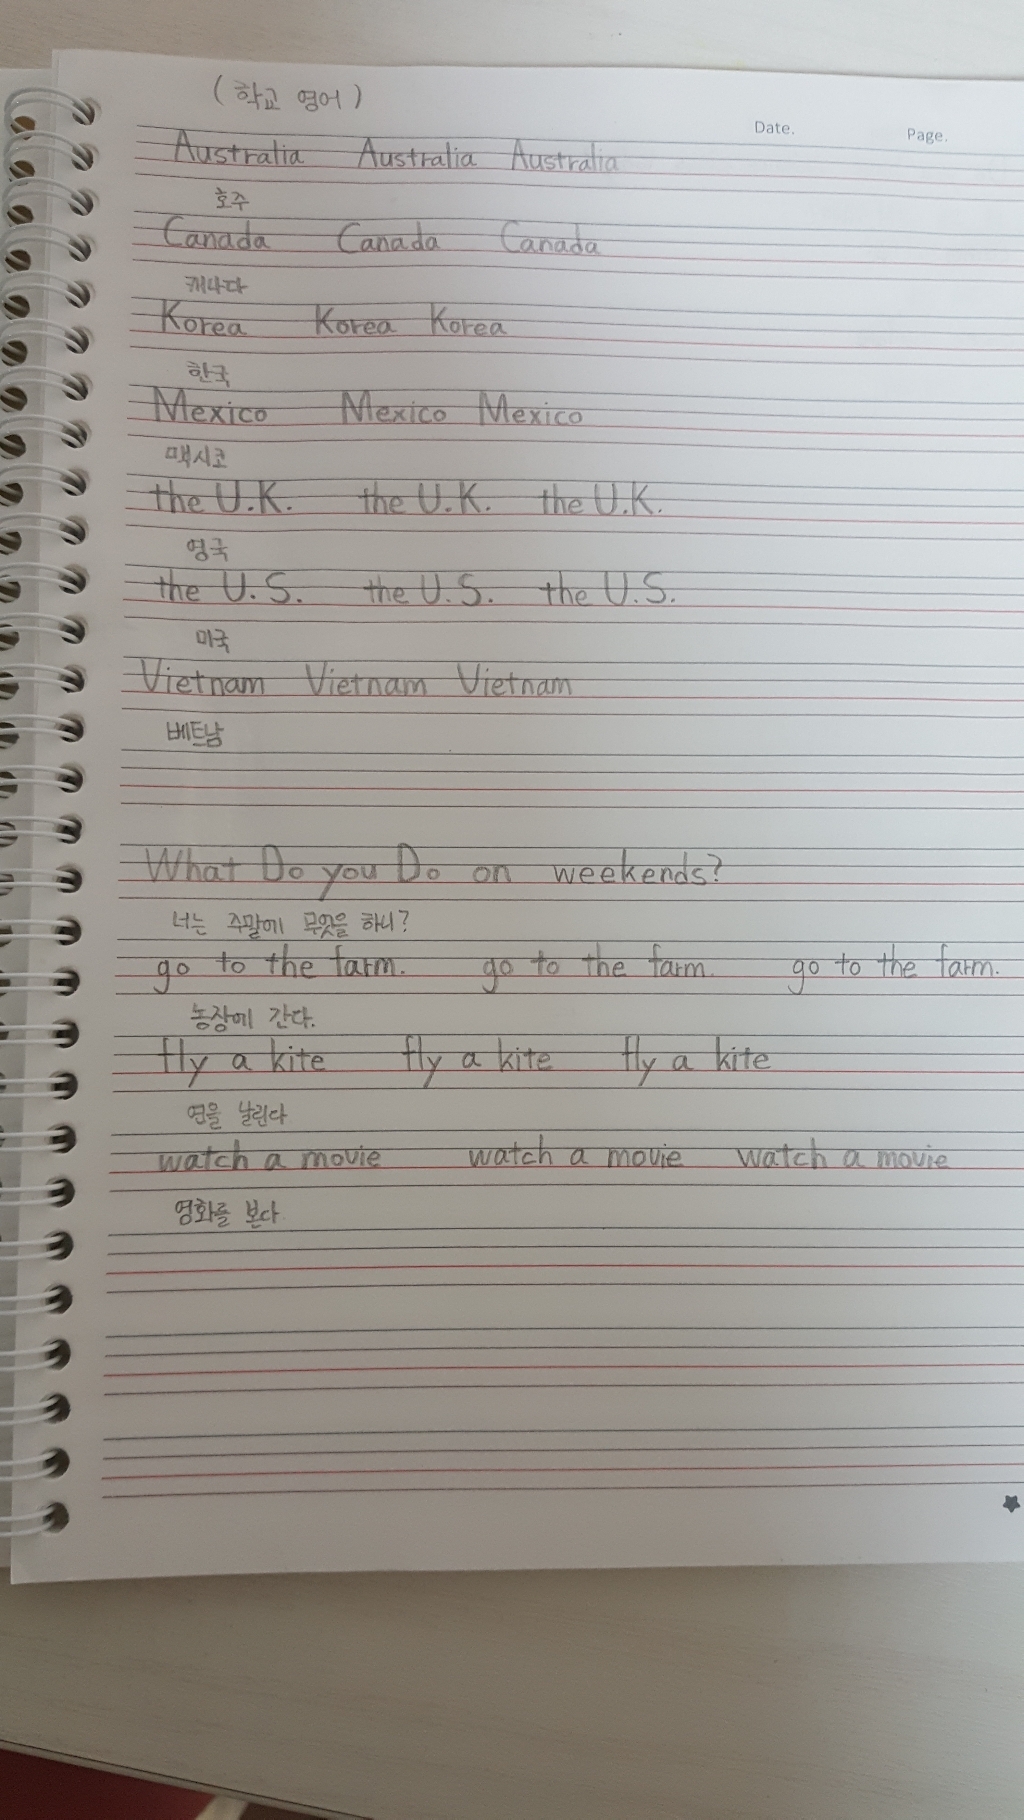 (학교 영어)
Date. Page.
Australia Australia Australia
호주
Canada Canada Canada
캐나다
Korea Korea Korea
한국
Mexico Mexico Mexico
맥시코
the U.K. the U.K. the U.K.
영국
the U.S. the U.S. the U.S.
미국
Vietnam Vietnam Vietnam
베트남
What Do you Do on weekends?
너는 주말에 무엇을 하니?
go to the farm. go to the farm. go to the farm.
농장에 간다.
fly a kite fly a kite fly a kite
연을 날린다
watch a movie watch a movie watch a movie
영화를 본다